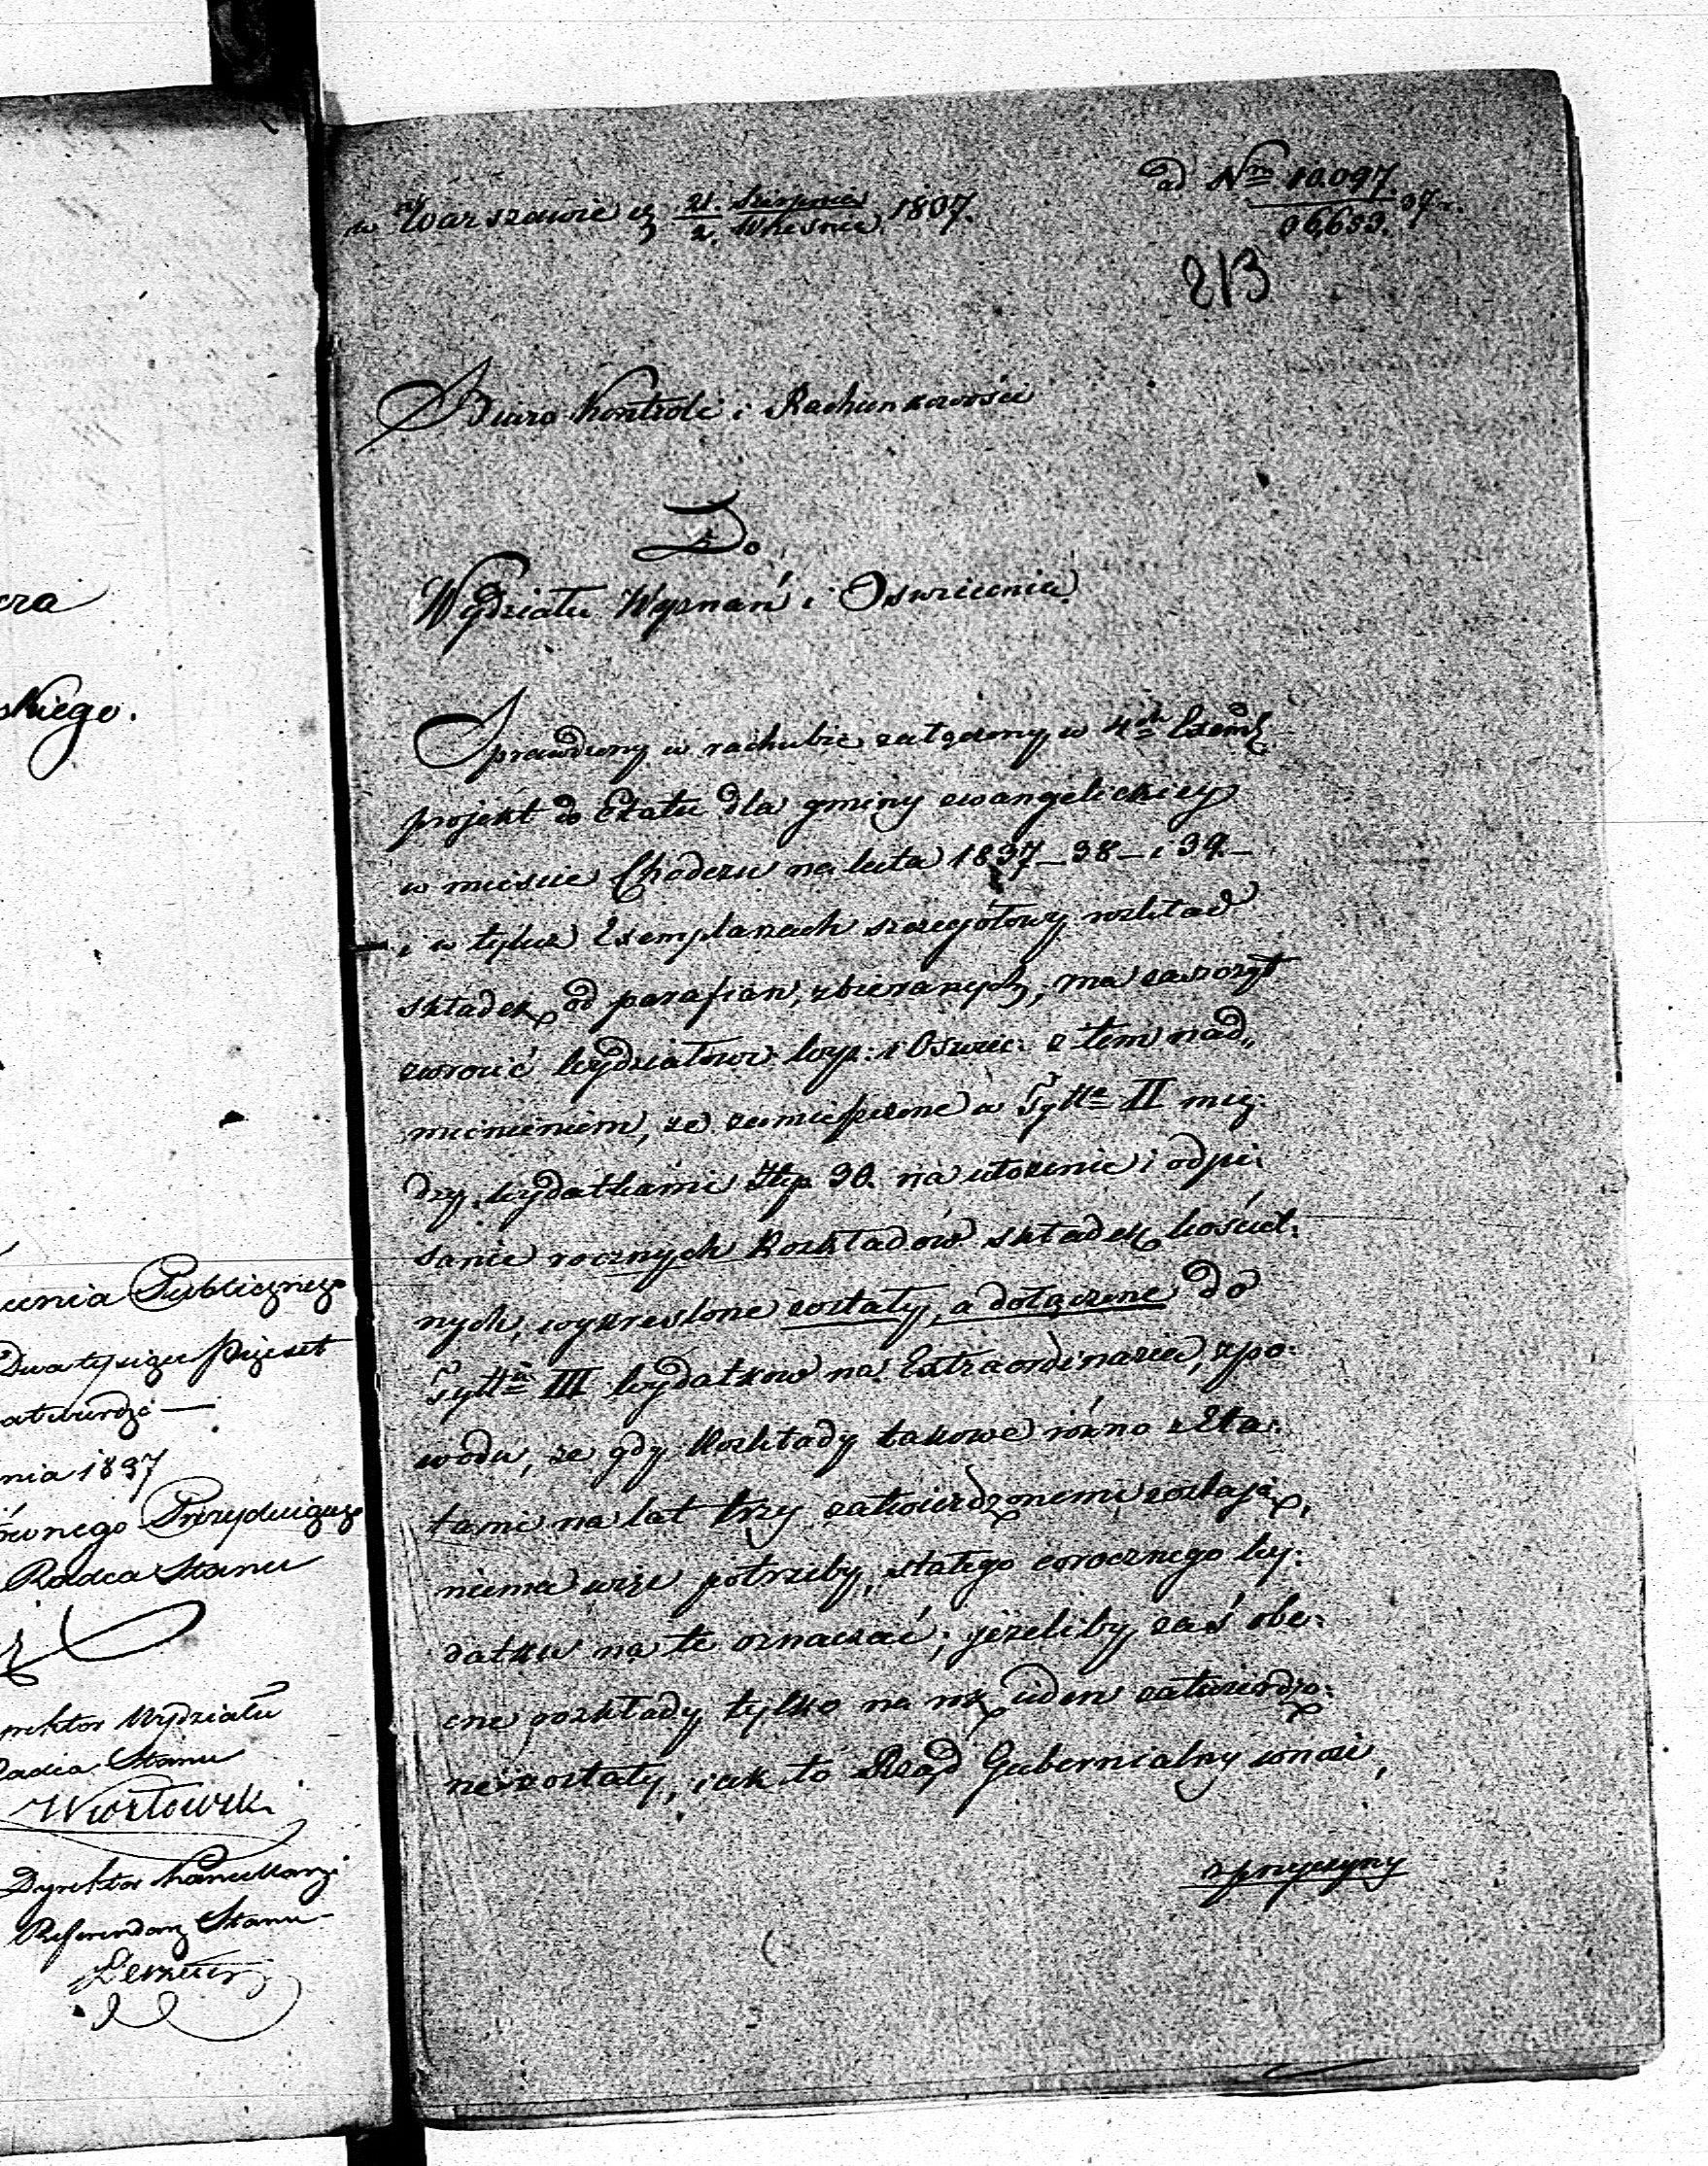 cra
skiego.
cenia Publicznego
Dwa tysiące pięćset
atwierdzi —
nia 1837
Radca Stanu
Wydziału
Radca Stanu
Dyrektor Kancellaryi
Referendarz Stanu
w Warszawie d. 21. Sierpnia / 2. Września 1837.
ad Nro 10.097. / 36,633. 37 r.
213
Biuro Kontroli i Rachunkowości
Do
Wydziału Wyznań i Oświecenia.
Sprawdzony w rachubie załączony w 4ch Exempl.
projekt do Etatu dla gminy ewangelickiey
w mieście Chodczu na lata 1837 – 38 – i 39 –
i w tyluż Exemplarzach szczegółowy rozkład
składek od parafian, zbieranych, ma zaszczyt
zwrócić Wydziałowi Wyz: i Oświec: z tem nad„
mienieniem, że zamieszczone w Tytle II mię:
dzy wydatkami Złp 30. na ułożenie i odpi:
sanie rocznych Rozkładów składek kościel:
nych, wykreślone zostały, a dołączone do
Tytłu III wydatków na Extraordinaria, z po:
wodu, że gdy Rozkłady takowe równo z Eta:
tami na lat trzy zatwierdzonemi zostają,
niema więc potrzeby, stałego corocznego wy:
datku na te oznaczać; jeżeliby zaś obe:
cne rozkłady tylko na rok jeden zatwierdzo:
ne zostały, jak to Rząd Gubernialny wnosi,
z przyczyny